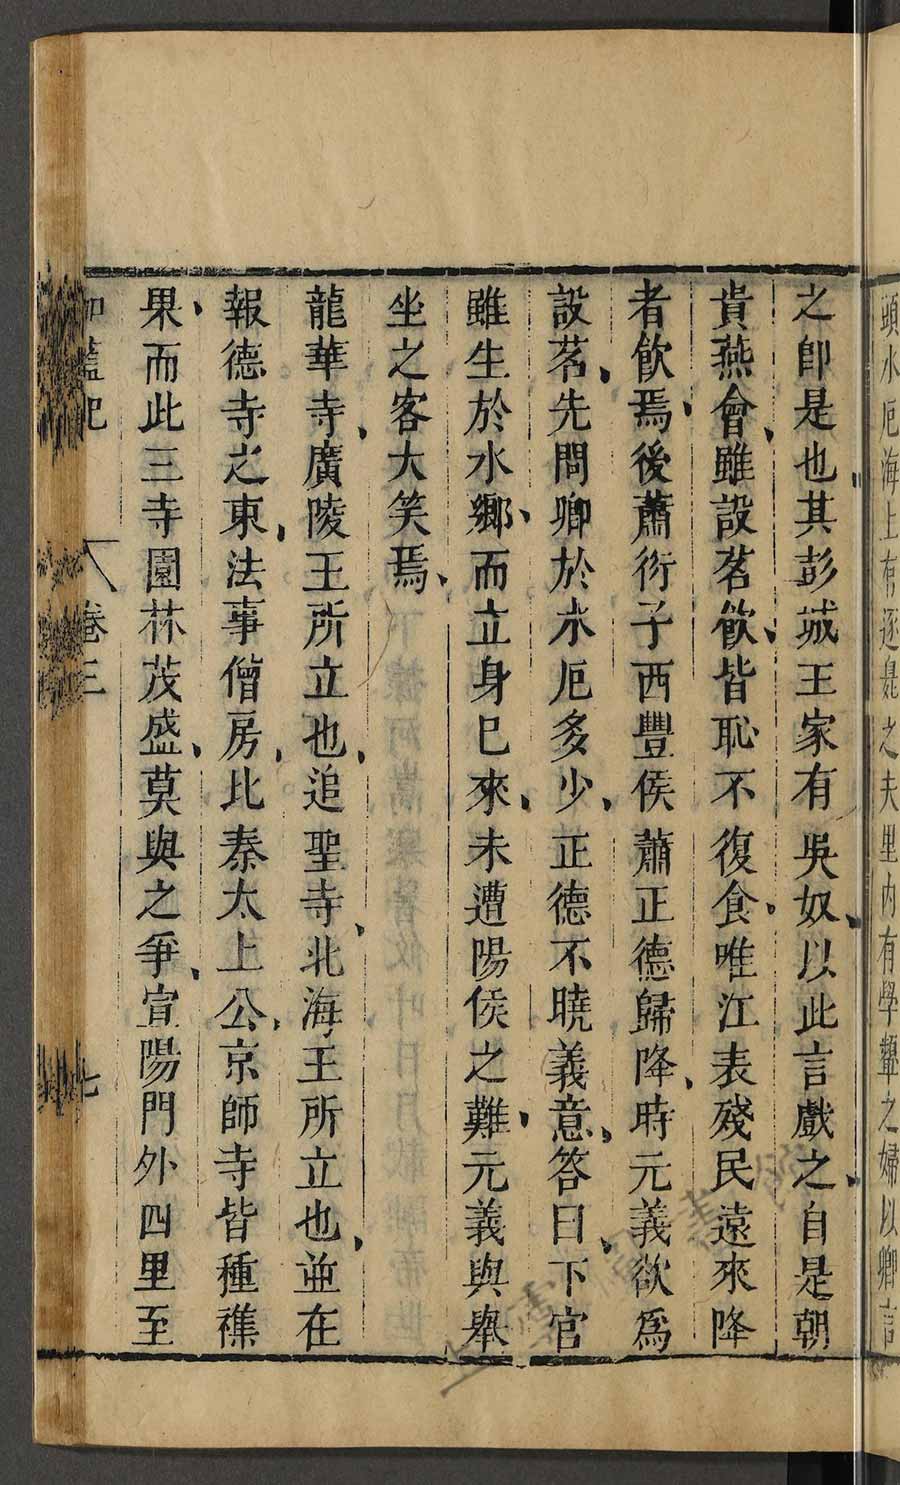 頭水厄海上有逐臭之夫里內有學顰之婦以卿言
之卽是也其彭城王家有吳奴以此言戲之自是朝
貴燕會雖設茗飲皆恥不復食唯江表殘民遠來降
者飲焉後蕭衍子西豐侯蕭正德歸降時元義欲爲
設茗先問卿於水厄多少正德不曉義意答曰下官
雖生於水鄉而立身巳來未遭陽侯之難元義與舉
坐之客大笑焉
龍華寺廣陵王所立也追聖寺北海王所立也並在
報德寺之東法事僧房比秦太上公京師寺皆種襍
果而此三寺園林茂盛莫與之爭宣陽門外四里至
伽藍記 卷三 七